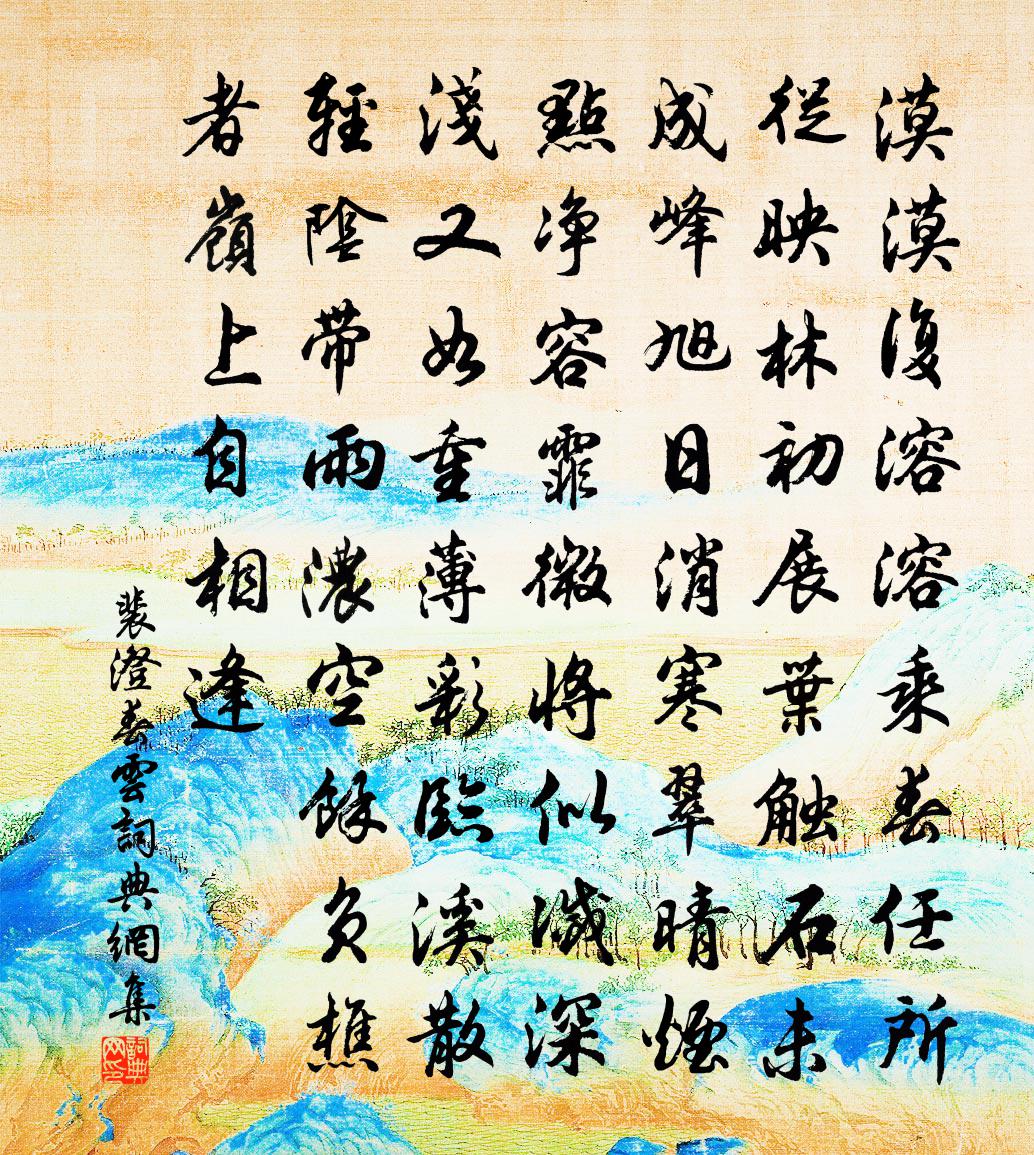 漠漠復溶溶乘春任所
從映林初展葉触石未
成峰旭日消寒翠晴煙
點净容霏微將似滅深
淺又如重薄彩臨溪散
輕陰帶雨濃空餘負樵
者嶺上自相逢
裴澄春雲詞典網集
詞典网印